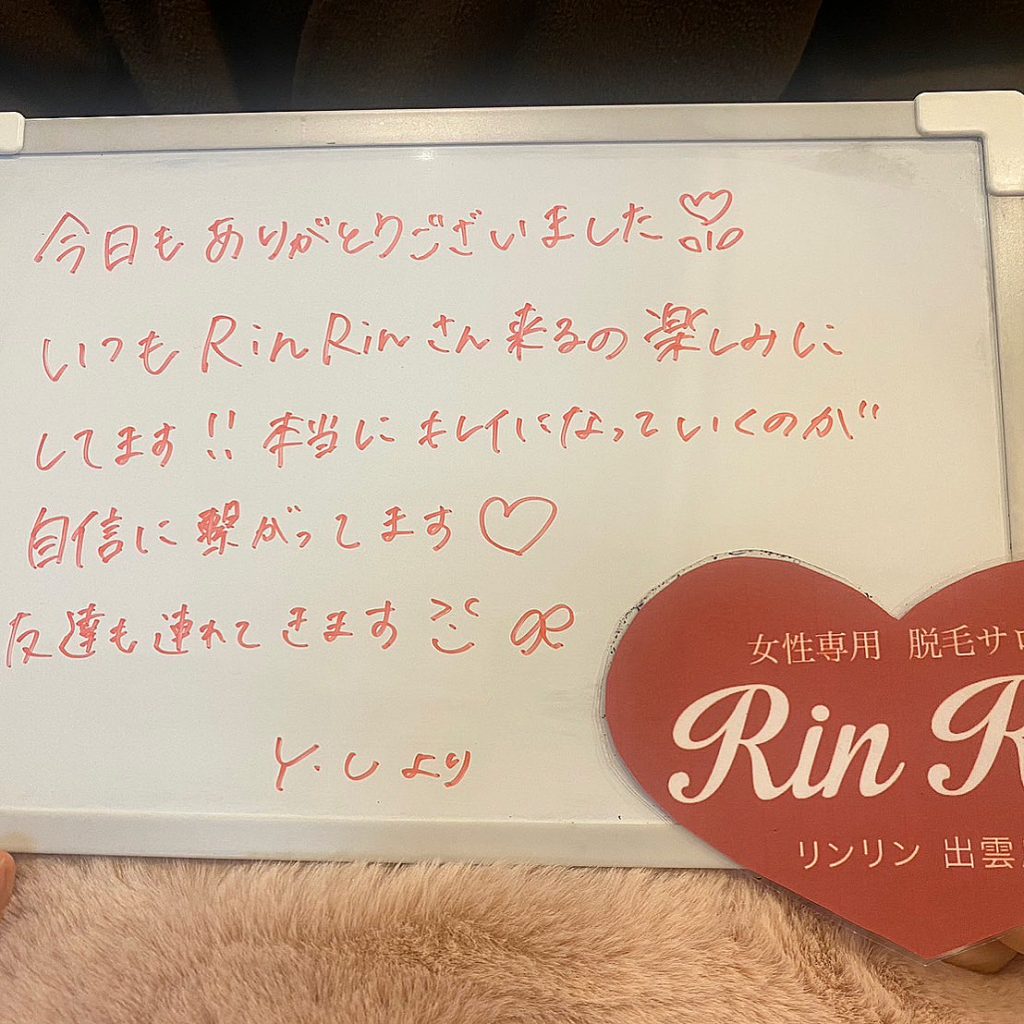 今日もありがとうございました♡
いつもRinRinさん来るの楽しみに
してます!!本当にキレイになっていくのが
自信に繋がってます♡
友達も連れてきます
Y.Uより
女性専用 脱毛サロ
Rin R
リンリン 出雲